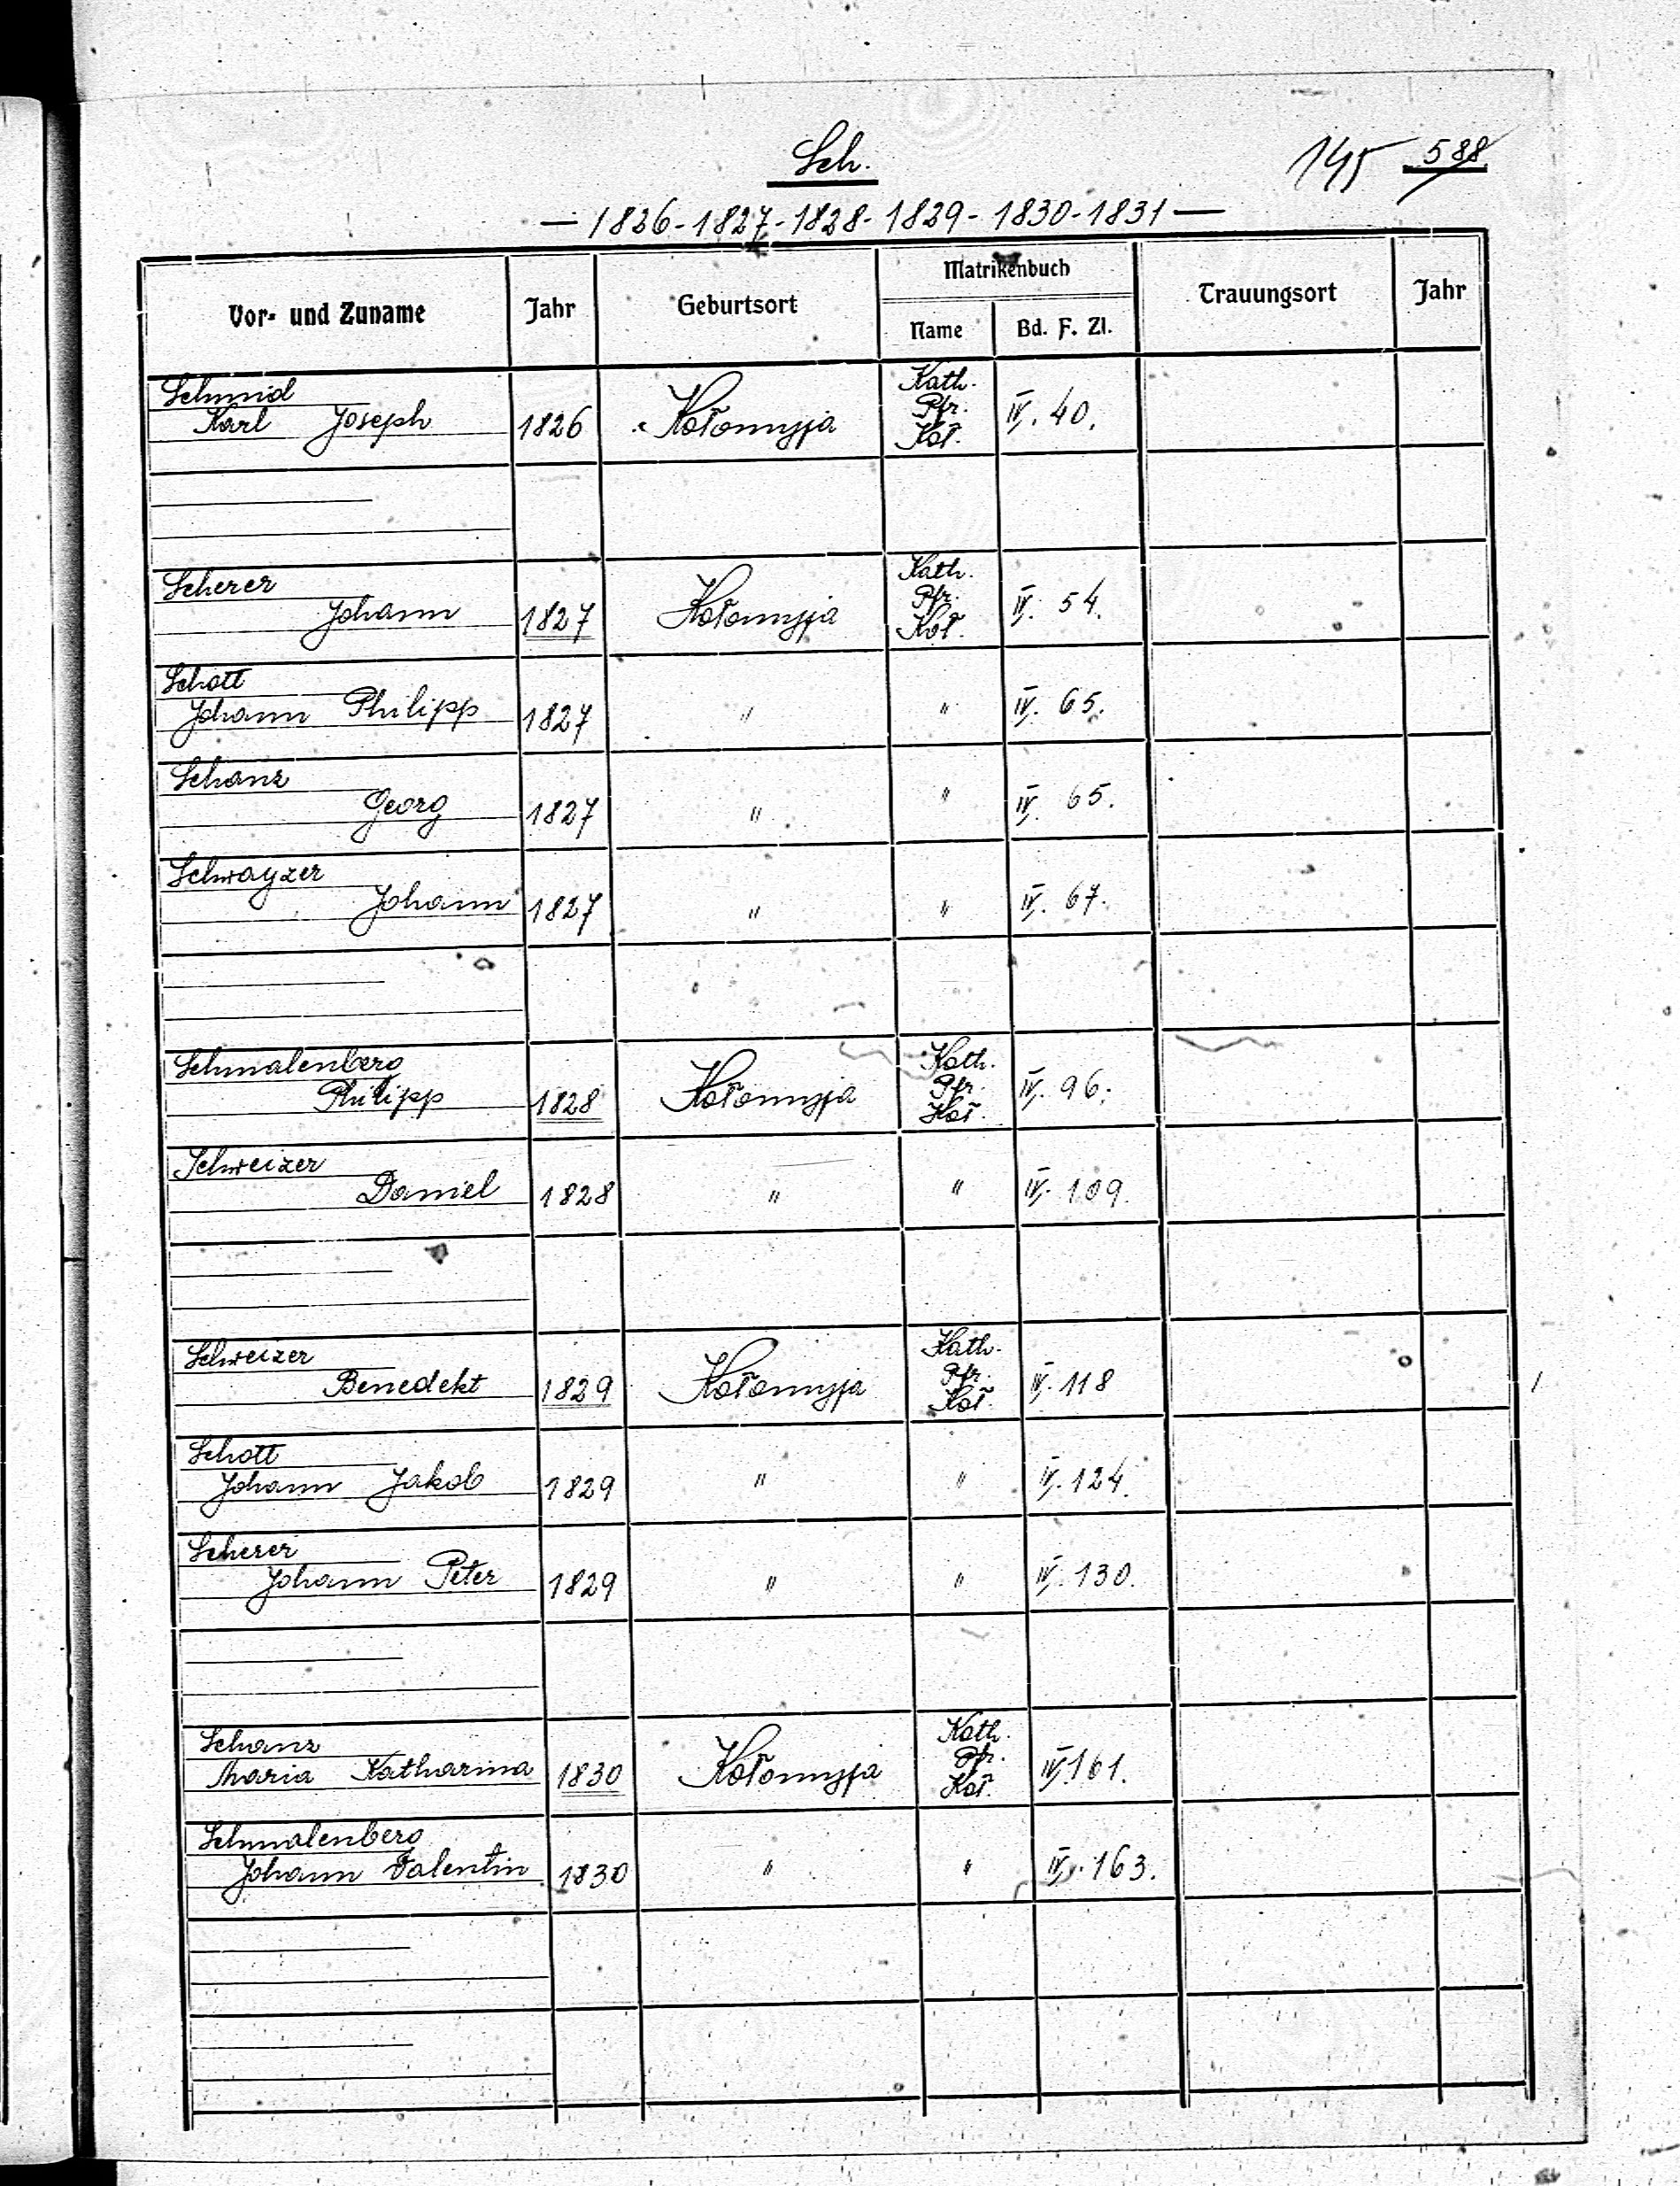 Sch.
145 588
— 1826-1827-1828-1829-1830-1831 —
Vor- und Zuname Jahr Geburtsort Matrikenbuch Trauungsort Jahr
Name Bd. F. Zl.
Schmid Kath.
Karl Joseph 1826 Kołomyja Pfr. IV. 40.
Koł.
Scherer Kath.
Johann 1827 Kołomyja Pfr. IV. 54.
Koł.
Schott
Johann Philipp 1827 " " IV. 65.
Schanz
Georg 1827 " " IV. 65.
Schwayzer
Johann 1827 " " IV. 67.
Schmalenberg Kath.
Philipp 1828 Kołomyja Pfr. IV. 96.
Koł.
Schweizer
Daniel 1828 " " IV. 109.
Schweizer Kath.
Benedekt 1829 Kołomyja Pfr. IV. 118
Koł.
Schott
Johann Jakob 1829 " " IV. 124.
Scherer
Johann Peter 1829 " " IV. 130.
Schanz Kath.
Maria Katharina 1830 Kołomyja Pfr. IV. 161.
Koł.
Schmalenberg
Johann Valentin 1830 " " IV. 163.